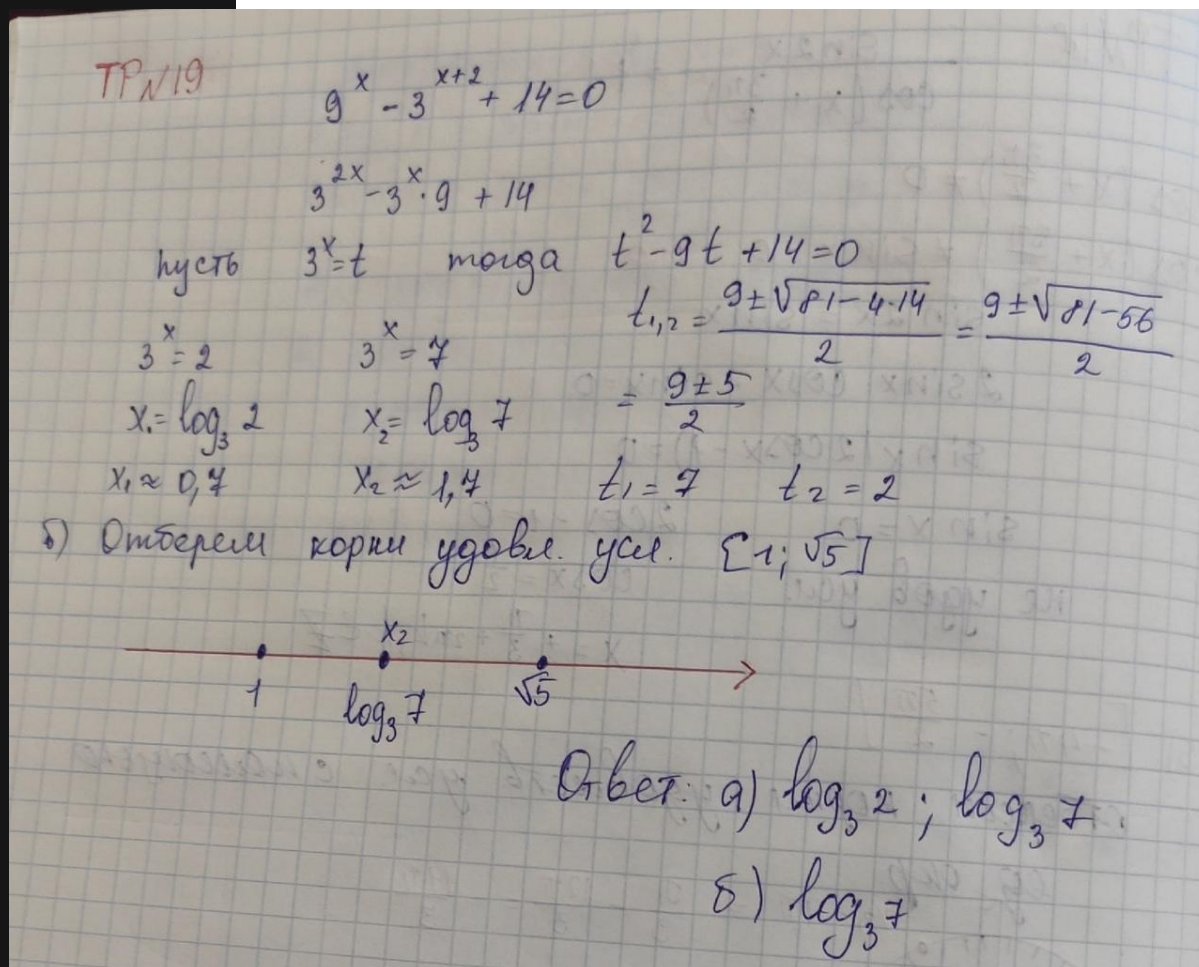 ТР№19
9^x - 3^(x+2) + 14 = 0
3^(2x) - 3^x · 9 + 14
пусть 3^x = t тогда t^2 - 9t + 14 = 0
t1,2 = (9 ± √(81 - 4·14))/2 = (9 ± √(81 - 56))/2
= (9 ± 5)/2
t1 = 7 t2 = 2
3^x = 2 3^x = 7
x1 = log3 2 x2 = log3 7
x1 ≈ 0,7 x2 ≈ 1,7
б) Отберем корни удовл. усл. [1; √5]
x2
1 log3 7 √5
Ответ: а) log3 2 ; log3 7
б) log3 7